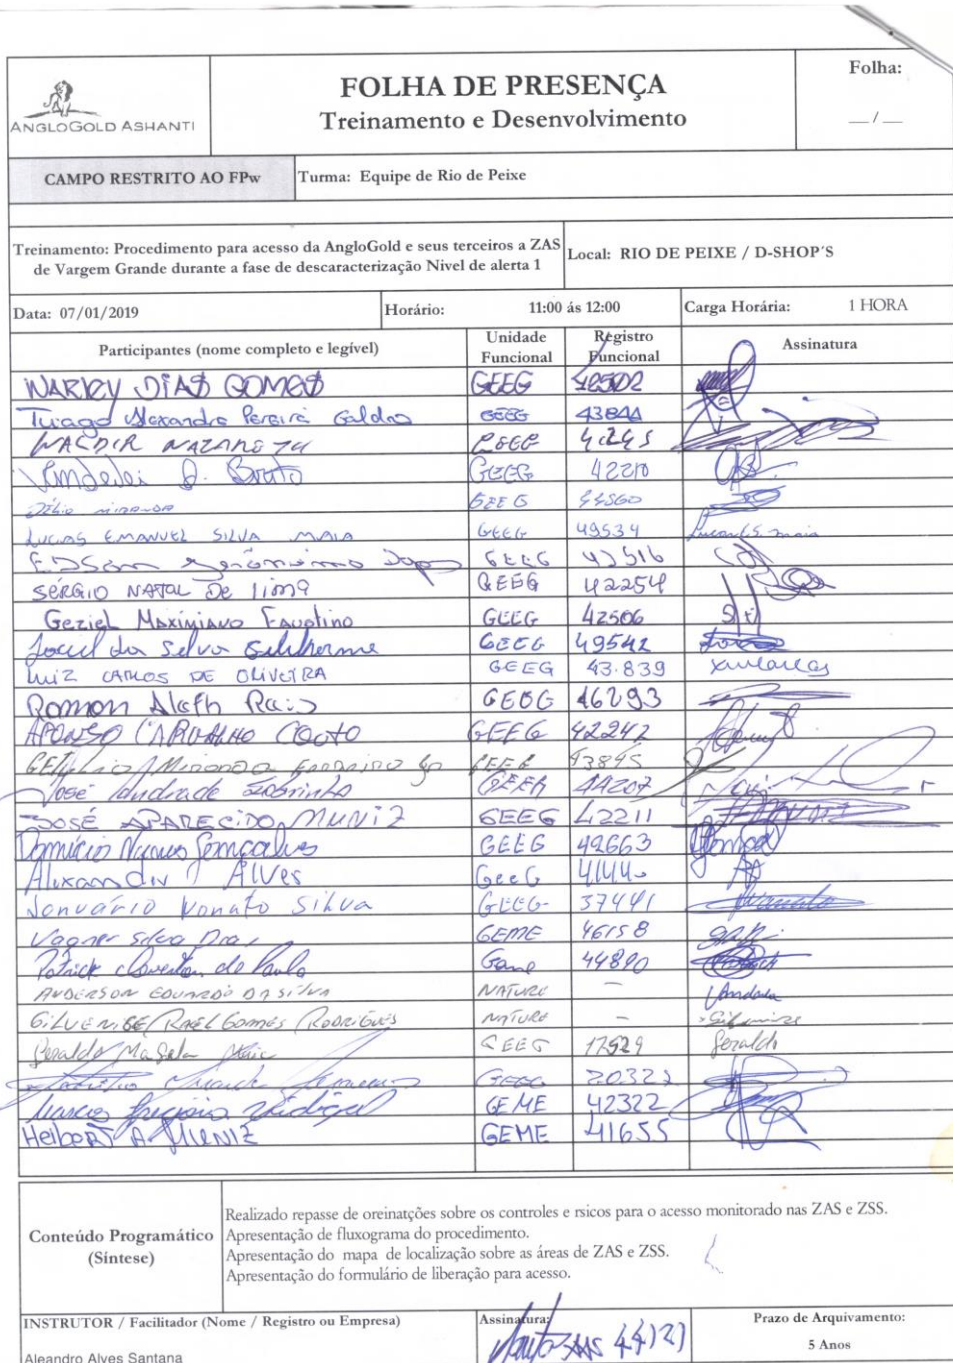 FOLHA DE PRESENÇA
Treinamento e Desenvolvimento
Folha:
__ / __
ANGLOGOLD ASHANTI
CAMPO RESTRITO AO FPw
Turma: Equipe de Rio de Peixe
Treinamento: Procedimento para acesso da AngloGold e seus terceiros a ZAS
de Vargem Grande durante a fase de descaracterização Nivel de alerta 1
Local: RIO DE PEIXE / D-SHOP'S
Data: 07/01/2019 Horário: 11:00 ás 12:00 Carga Horária: 1 HORA
Participantes (nome completo e legível) Unidade Funcional Registro Funcional Assinatura
WARLEY DIAS GOMES GEEG
Tiago Alexandre Pereira Galdino GEEG 43844
WALDIR NAZARETH
Vandelei GEEG 42210
Délio MIRANDA GEEG
LUCAS EMANUEL SILVA MAIA GEEG 49534 Lucas E S. maia
EDSom GEEG 42516
SÉRGIO NATAL De lima GEEG 42254
Geziel Maximiano Faustino GEEG 42506
da Silva Guilherme GEEG 49542
LUIZ CARLOS DE OLIVEIRA GEEG 43.839
Ramon Alefh GEEG 46293
AFONSO CARVALHO COUTO GEEG 42242
Miranda GEEG 43845
José Andrade Sobrinho 44207
JOSÉ APARECIDO MUNIZ GEEG 42211
Domício Nunes Gonçalves GEEG 42663
Alves GeeG
Januário Donato Silva GEEG 37441
Vagner Silva GEME 46158
Patrick de Paula 44890
ANDERSON EDUARDO DA SILVA NATURE –
GILVENISE RAEL GOMES RODRIGUES NATURE –
Geraldo Magela GEEG 17529 Geraldo
GEEG
Marcos GEME 42322
Helbert A. MUNIZ GEME 41655
Conteúdo Programático
(Síntese)
Realizado repasse de oreinatções sobre os controles e rsicos para o acesso monitorado nas ZAS e ZSS.
Apresentação de fluxograma do procedimento.
Apresentação do mapa de localização sobre as áreas de ZAS e ZSS.
Apresentação do formulário de liberação para acesso.
INSTRUTOR / Facilitador (Nome / Registro ou Empresa) Assinatura: Prazo de Arquivamento:
Aleandro Alves Santana 5 Anos